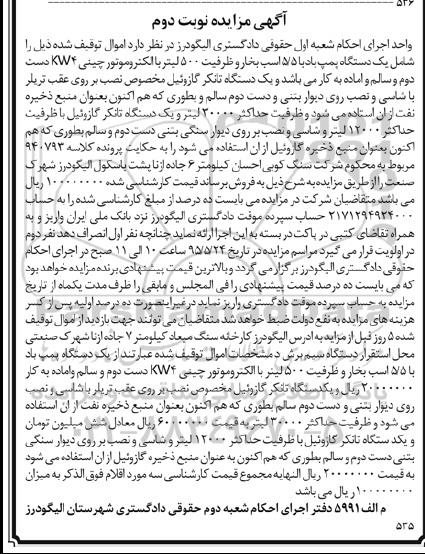 ۵۳۶
آگهی مزایده نوبت دوم
واحد اجرای احکام شعبه اول حقوقی دادگستری الیگودرز در نظر دارد اموال توقیف شده ذیل را
شامل یک دستگاه پمپ باد با ۵/۵ اسب بخار و ظرفیت ۵۰۰ لیتر با الکتروموتور چینی KW۴ دست
دوم و سالم و اماده به کار می باشد و یک دستگاه تانکر گازوئیل مخصوص نصب بر روی عقب تریلر
با شاسی و نصب روی دیوار بتنی و دست دوم سالم و بطوری که هم اکنون بعنوان منبع ذخیره
نفت از ان استاده می شود و ظرفیت حداکثر ۳۰۰۰۰ لیتر و یک دستگاه تانکر گازوئیل با ظرفیت
حداکثر ۱۲۰۰۰ لیتر و شاسی و نصب بر روی دیوار سنگی بتنی دست دوم و سالم بطوری که هم
اکنون بعنوان منبع ذخیره گازوئیل از ان استفاده می شود را به حکایت پرونده کلاسه ۹۴۰۷۹۳
مربوط به محکوم شرکت سنگ کوبی احسان کیلومتر ۶ جاده ازنا پشت باسکول الیگودرز شهرک
صنعت را از طریق مزایده به شرح ذیل به فروش برساند قیمت کارشناسی شده ۱۰۰۰۰۰۰۰۰ ریال
می باشد متقاضیان شرکت در مزایده می بایست ده درصد از مبلغ کارشناسی شده را به حساب
۲۱۷۱۲۹۴۹۲۴۰۰۰ حساب سپرده موقت دادگستری الیگودرز نزد بانک ملی ایران واریز و به
همراه تقاضای کتبی در پاکت در بسته به این اجرا ارائه نماید چنانچه نفر اول انصراف دهد نفر دوم
در اولویت قرار می گیرد مراسم مزایده در تاریخ ۹۵/۵/۲۴ ساعت ۱۰ الی ۱۱ صبح در اجرای احکام
حقوقی دادگستری الیگودرز برگزار می گردد و بالاترین قیمت پیشنهادی برنده مزایده خواهد بود
که می بایست ده درصد قیمت پیشنهادی را فی المجلس و مابقی را ظرف مدت یکماه از تاریخ
مزایده به حساب سپرده موقت دادگستری واریز نماید در غیراینصورت ده درصد اولیه پس از کسر
هزینه های مزایده به نفع دولت ضبط خواهد شد متقاضیان می توانند جهت بازدید از اموال توقیف
شده ۵ روز قبل از مزایده به ادرس الیگودرز کارخانه سنگ میعاد کیلومتر ۷ جاده ازنا شهرک صنعتی
محل استقرار دستگاه سیم برش د مشخصات اموال توقیف شده عبارتند از یک دستگاه پمپ باد
با ۵/۵ اسب بخار و ظرفیت ۵۰۰ لیتر با الکتروموتور چینی KW۴ دست دوم و سالم واماده به کار
۲۰۰۰۰۰۰۰ ریال و یکدستگاه تانکر گازوئیل مخصوص نصب بر روی عقب تریلر با شاسی و نصب
روی دیوار بتنی و دست دوم سالم بطوری که هم اکنون بعنوان منبع ذخیره نفت از ان استفاده
می شود و ظرفیت حداکثر ۳۰۰۰۰ لیتر به قیمت ۶۰۰۰۰۰۰۰ ریال معادل شش میلیون تومان
و یکد ستگاه تانکر گازوئیل با ظرفیت حداکثر ۱۲۰۰۰ لیتر و شاسی و نصب بر روی دیوار سنگی
بتنی دست دوم و سالم بطوری که هم اکنون به عنوان منبع ذخیره گازوئیل از ان استفاده می شود
به قیمت ۲۰۰۰۰۰۰۰ ریال النهایه مجموع قیمت کارشناسی سه مورد اقلام فوق الذکر به میزان
۱۰۰۰۰۰۰۰۰ ریال می باشد
م الف ۵۹۹۱ دفتر اجرای احکام شعبه دوم حقوقی دادگستری شهرستان الیگودرز
۵۲۵